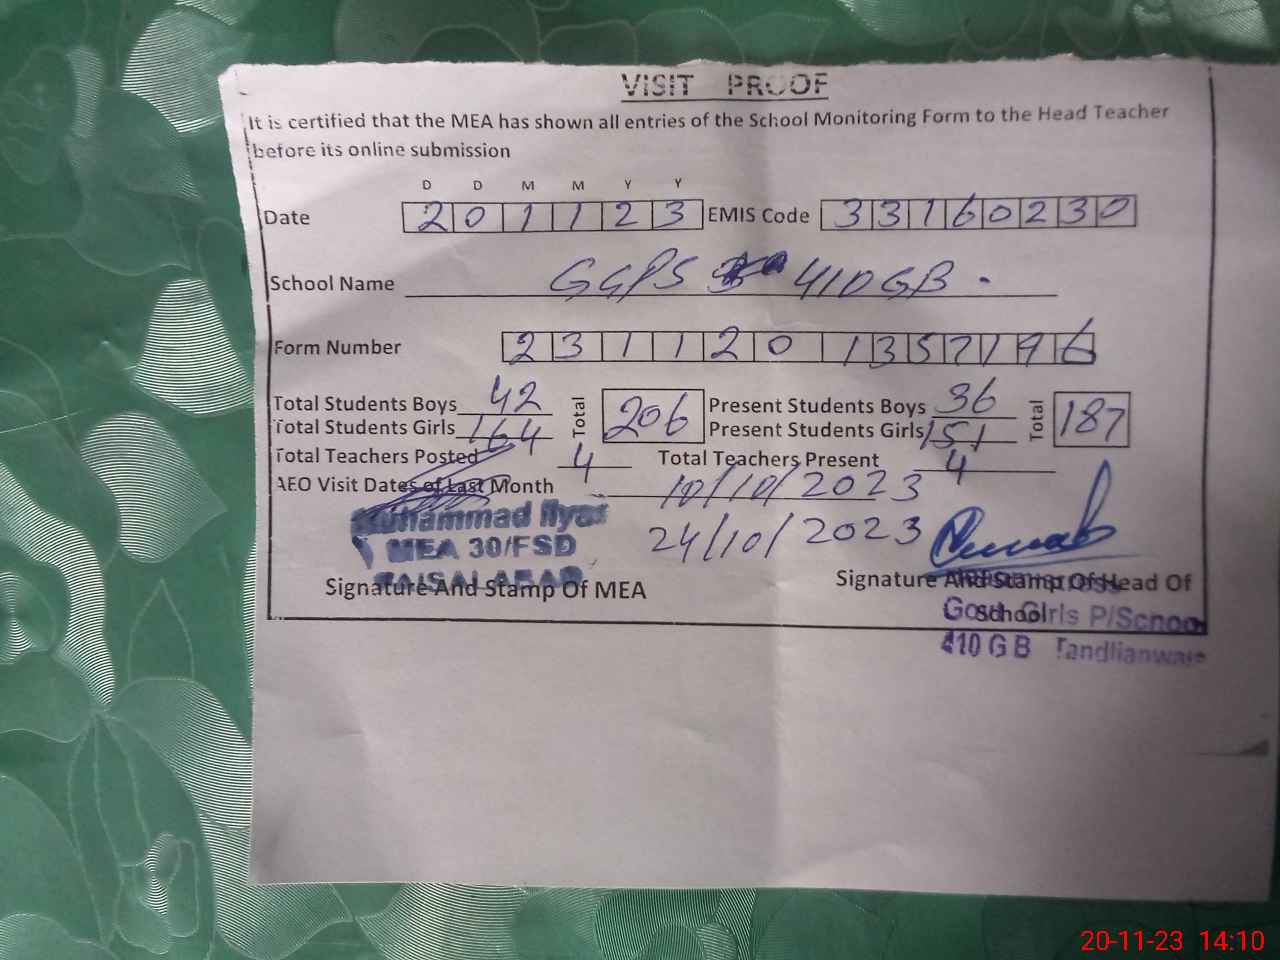 VISIT PROOF
It is certified that the MEA has shown all entries of the School Monitoring Form to the Head Teacher
before its online submission
D D M M Y Y
Date 2 0 1 1 2 3 EMIS Code 3 3 1 6 0 2 3 0
School Name GGPS 410 GB.
Form Number 2 3 1 1 2 0 1 3 5 7 1 9 6
Total Students Boys 42 Total 206 Present Students Boys 36 Total 187
Total Students Girls 164 Present Students Girls 151
Total Teachers Posted 4 Total Teachers Present 4
AEO Visit Dates of Last Month 10/10/2023
24/10/2023
Muhammad Ilyas
MEA 30/FSD
FAISALABAD
Signature And Stamp Of MEA
Signature And Stamp Of Head Of
School
Govt Girls P/School
410 G B Tandlianwala
20-11-23 14:10